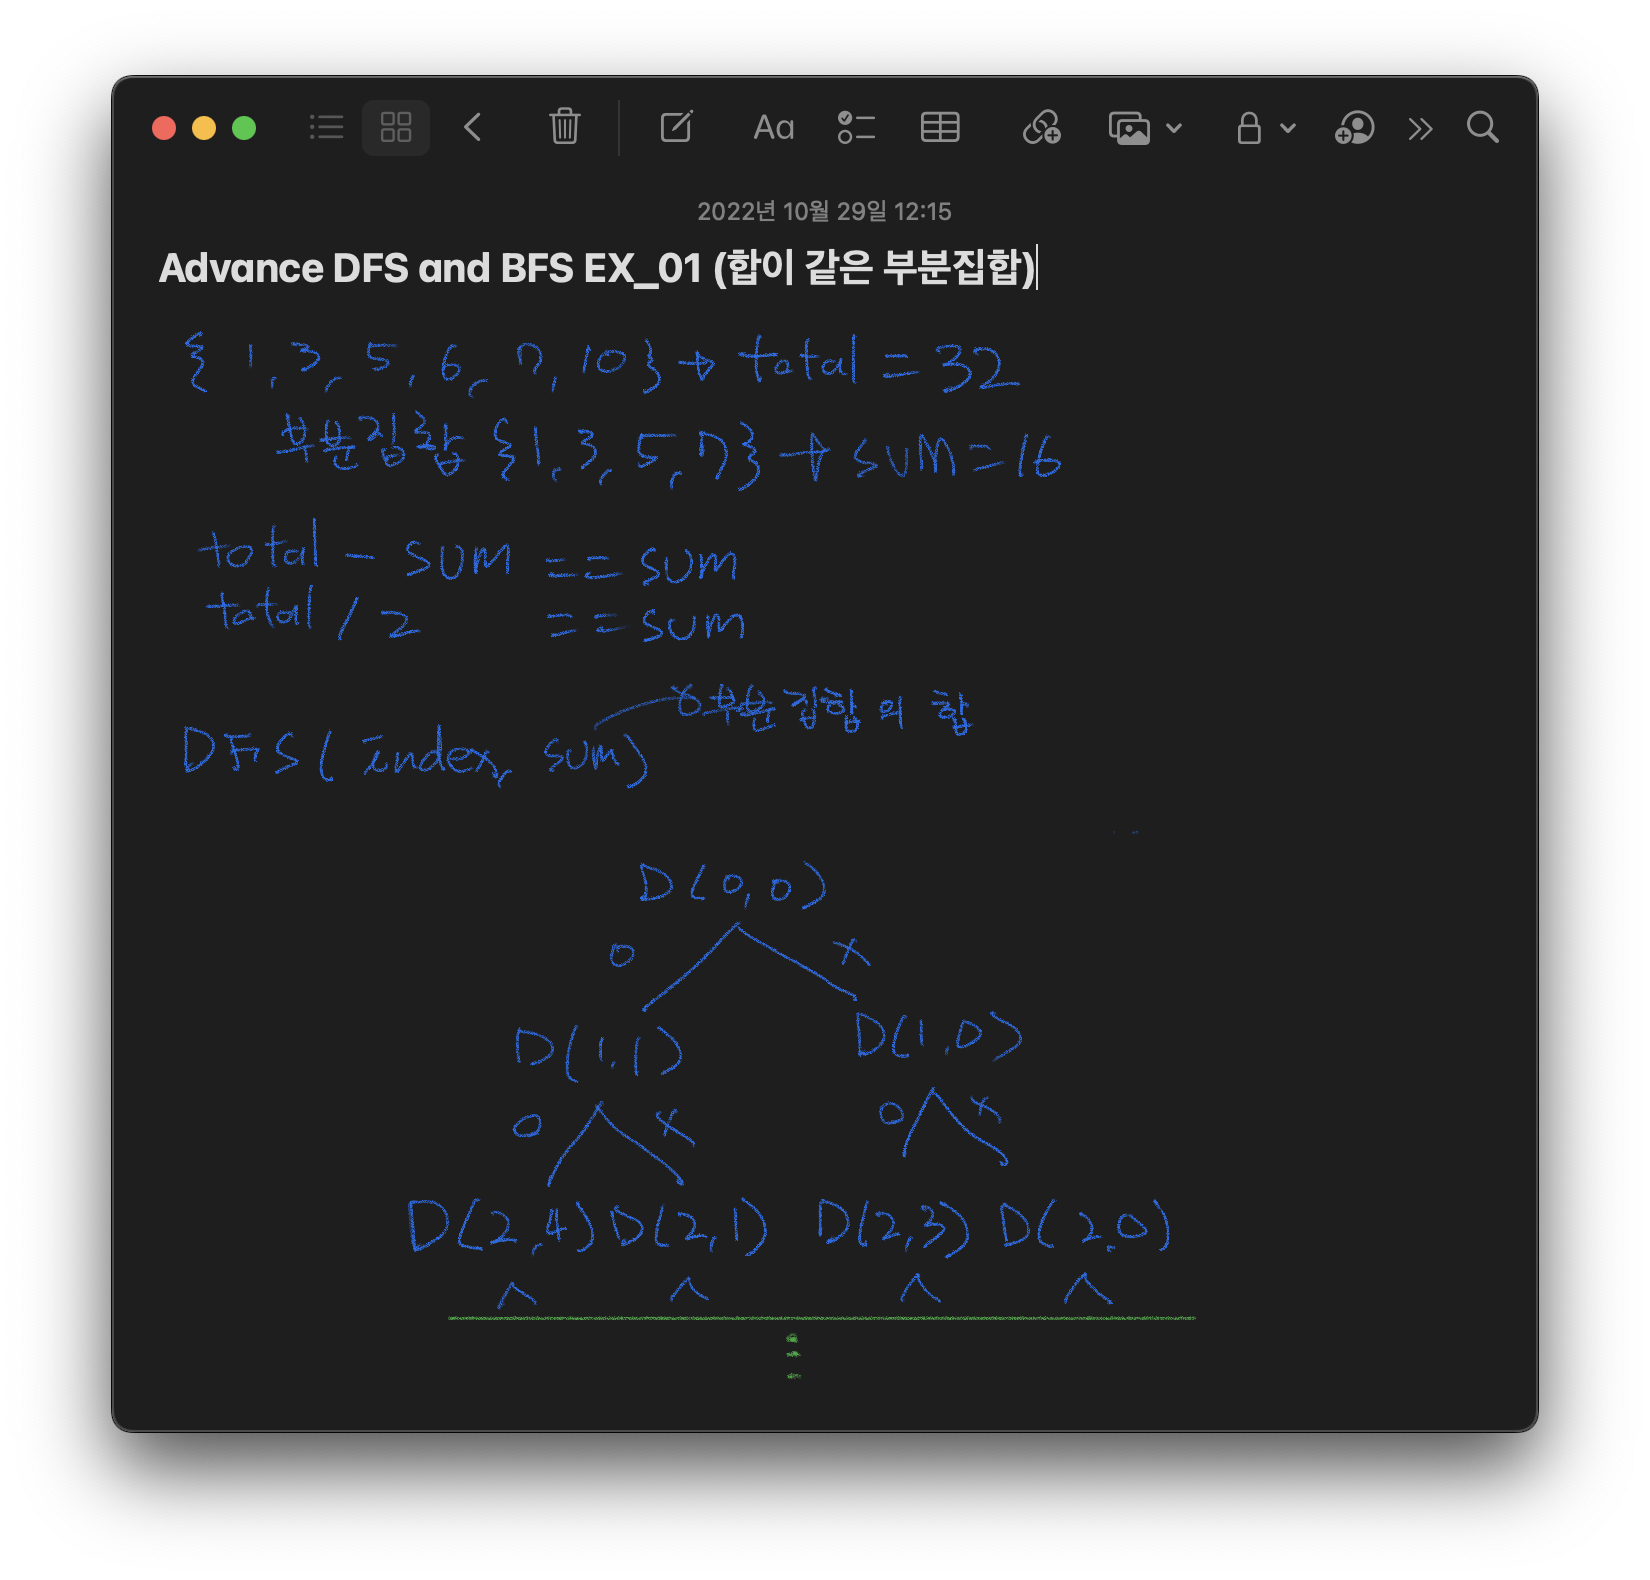 Aa
2022년 10월 29일 12:15
Advance DFS and BFS EX_01 (합이 같은 부분집합)
{ 1, 3, 5, 6, 7, 10 } → total = 32
부분집합 {1, 3, 5, 7} → sum = 16
total - sum == sum
total / 2 == sum
부분집합의 합
DFS( index, sum)
D(0,0)
O X
D(1,1) D(1,0)
O X O X
D(2,4) D(2,1) D(2,3) D(2,0)